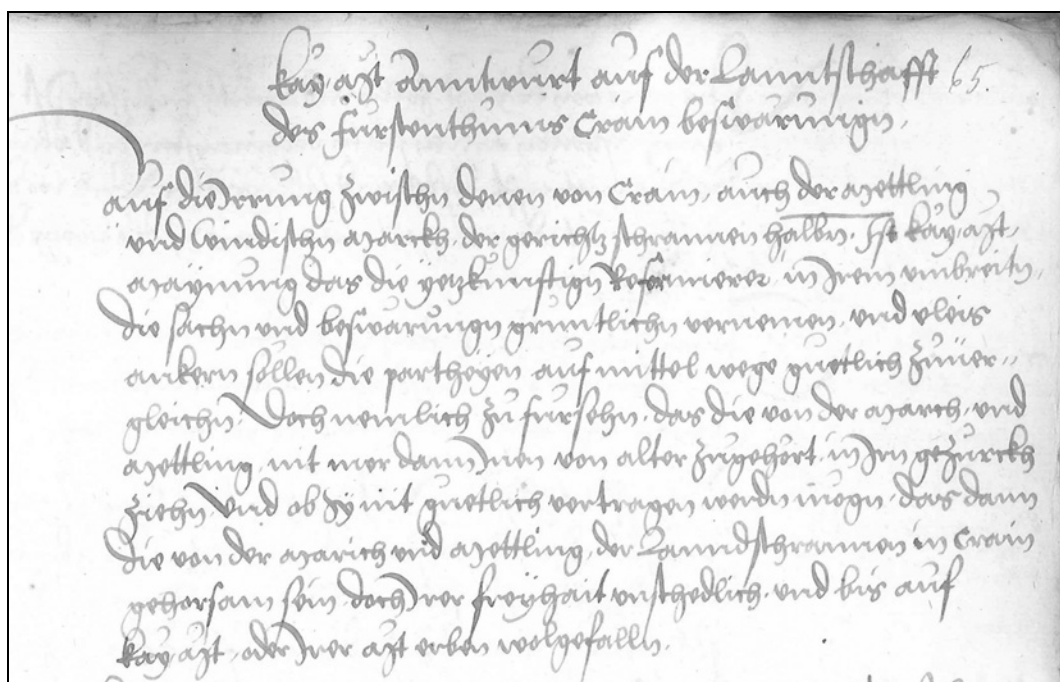 kay: Mt: Anntwurt auf der Lanntschafft 65.
des furstenthumbs Crain beswarungn.
Auf die Irrung zwischn denen von Crain, auch der Mettling
und Windischn Marckh, der gerichtz schrannen halbn. Ist kay: Mt:
Maynung das die yetzkunftign Reformierer, in Irem umbreitn,
die sachn und beswarungn gruntlichn vernemen, und vleis
ankern sollen die partheyen auf mittel wege guetlich zuuer-
gleichn, Doch nemlich zu fursehn, das die von der March, und
Mettling, nit mer dann Inen von alter zugehort, in Irn gezurckh
ziehn, Und ob Sy nit guetlich vertragen werdn mogn, das dann
die von der Marich und Mettling, der Lanndschrannen in Crain
gehorsam sein, doch Irer freyhait unschedlich, und bis auf
kay: Mt: oder Irer Mt erben wolgefalln.